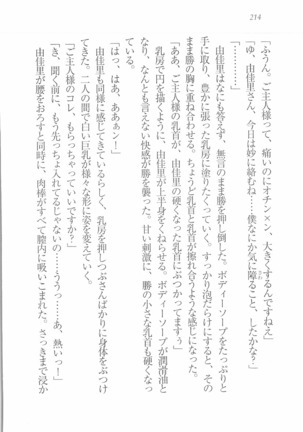 214
「ふうん。ご主人様って、痛いのにオチン×ン、大きくするんですねえ」
「ゆ、由佳里さん、今日は妙に絡むね……僕なにか気に障ること、したかな？」
「………」
由佳里はなにも答えず、無言のまま勝を押し倒した。ボディーソープをたっぷりと
手に取り、豊かに張った乳房に塗りたくっていく。すっかり泡だらけにすると、その
まま勝の胸に重ね合わせる。ちょうど乳首と乳首が擦れ合うような感じになった。
「ああ、ご主人様の乳首が、由佳里の硬くなった乳首にぶつかってますぅ」
乳房で円を描くように、由佳里が上半身をくねらせる。ボディーソープが潤滑油と
なり、なんとも言えない快感が勝を襲った。甘い刺激に、勝の小さな乳首も硬くなっ
ている。
「はっ、はあ、ああぁン！」
由佳里も同様に感じてきているらしく、乳房を押しつぶさんばかりに身体をぶつけ
てきた。二人の間で白い巨乳が様々な形に姿を変えていく。
「ご主人様のコレ、もらっちゃっていいですか？」
「き、聞く前に、もう先っちょ入れてるじゃないの……ううっ……あ、熱いっ！」
由佳里が腰をおろすと同時に、肉棒がすべて膣内に吸いこまれた。さっきまで浸か